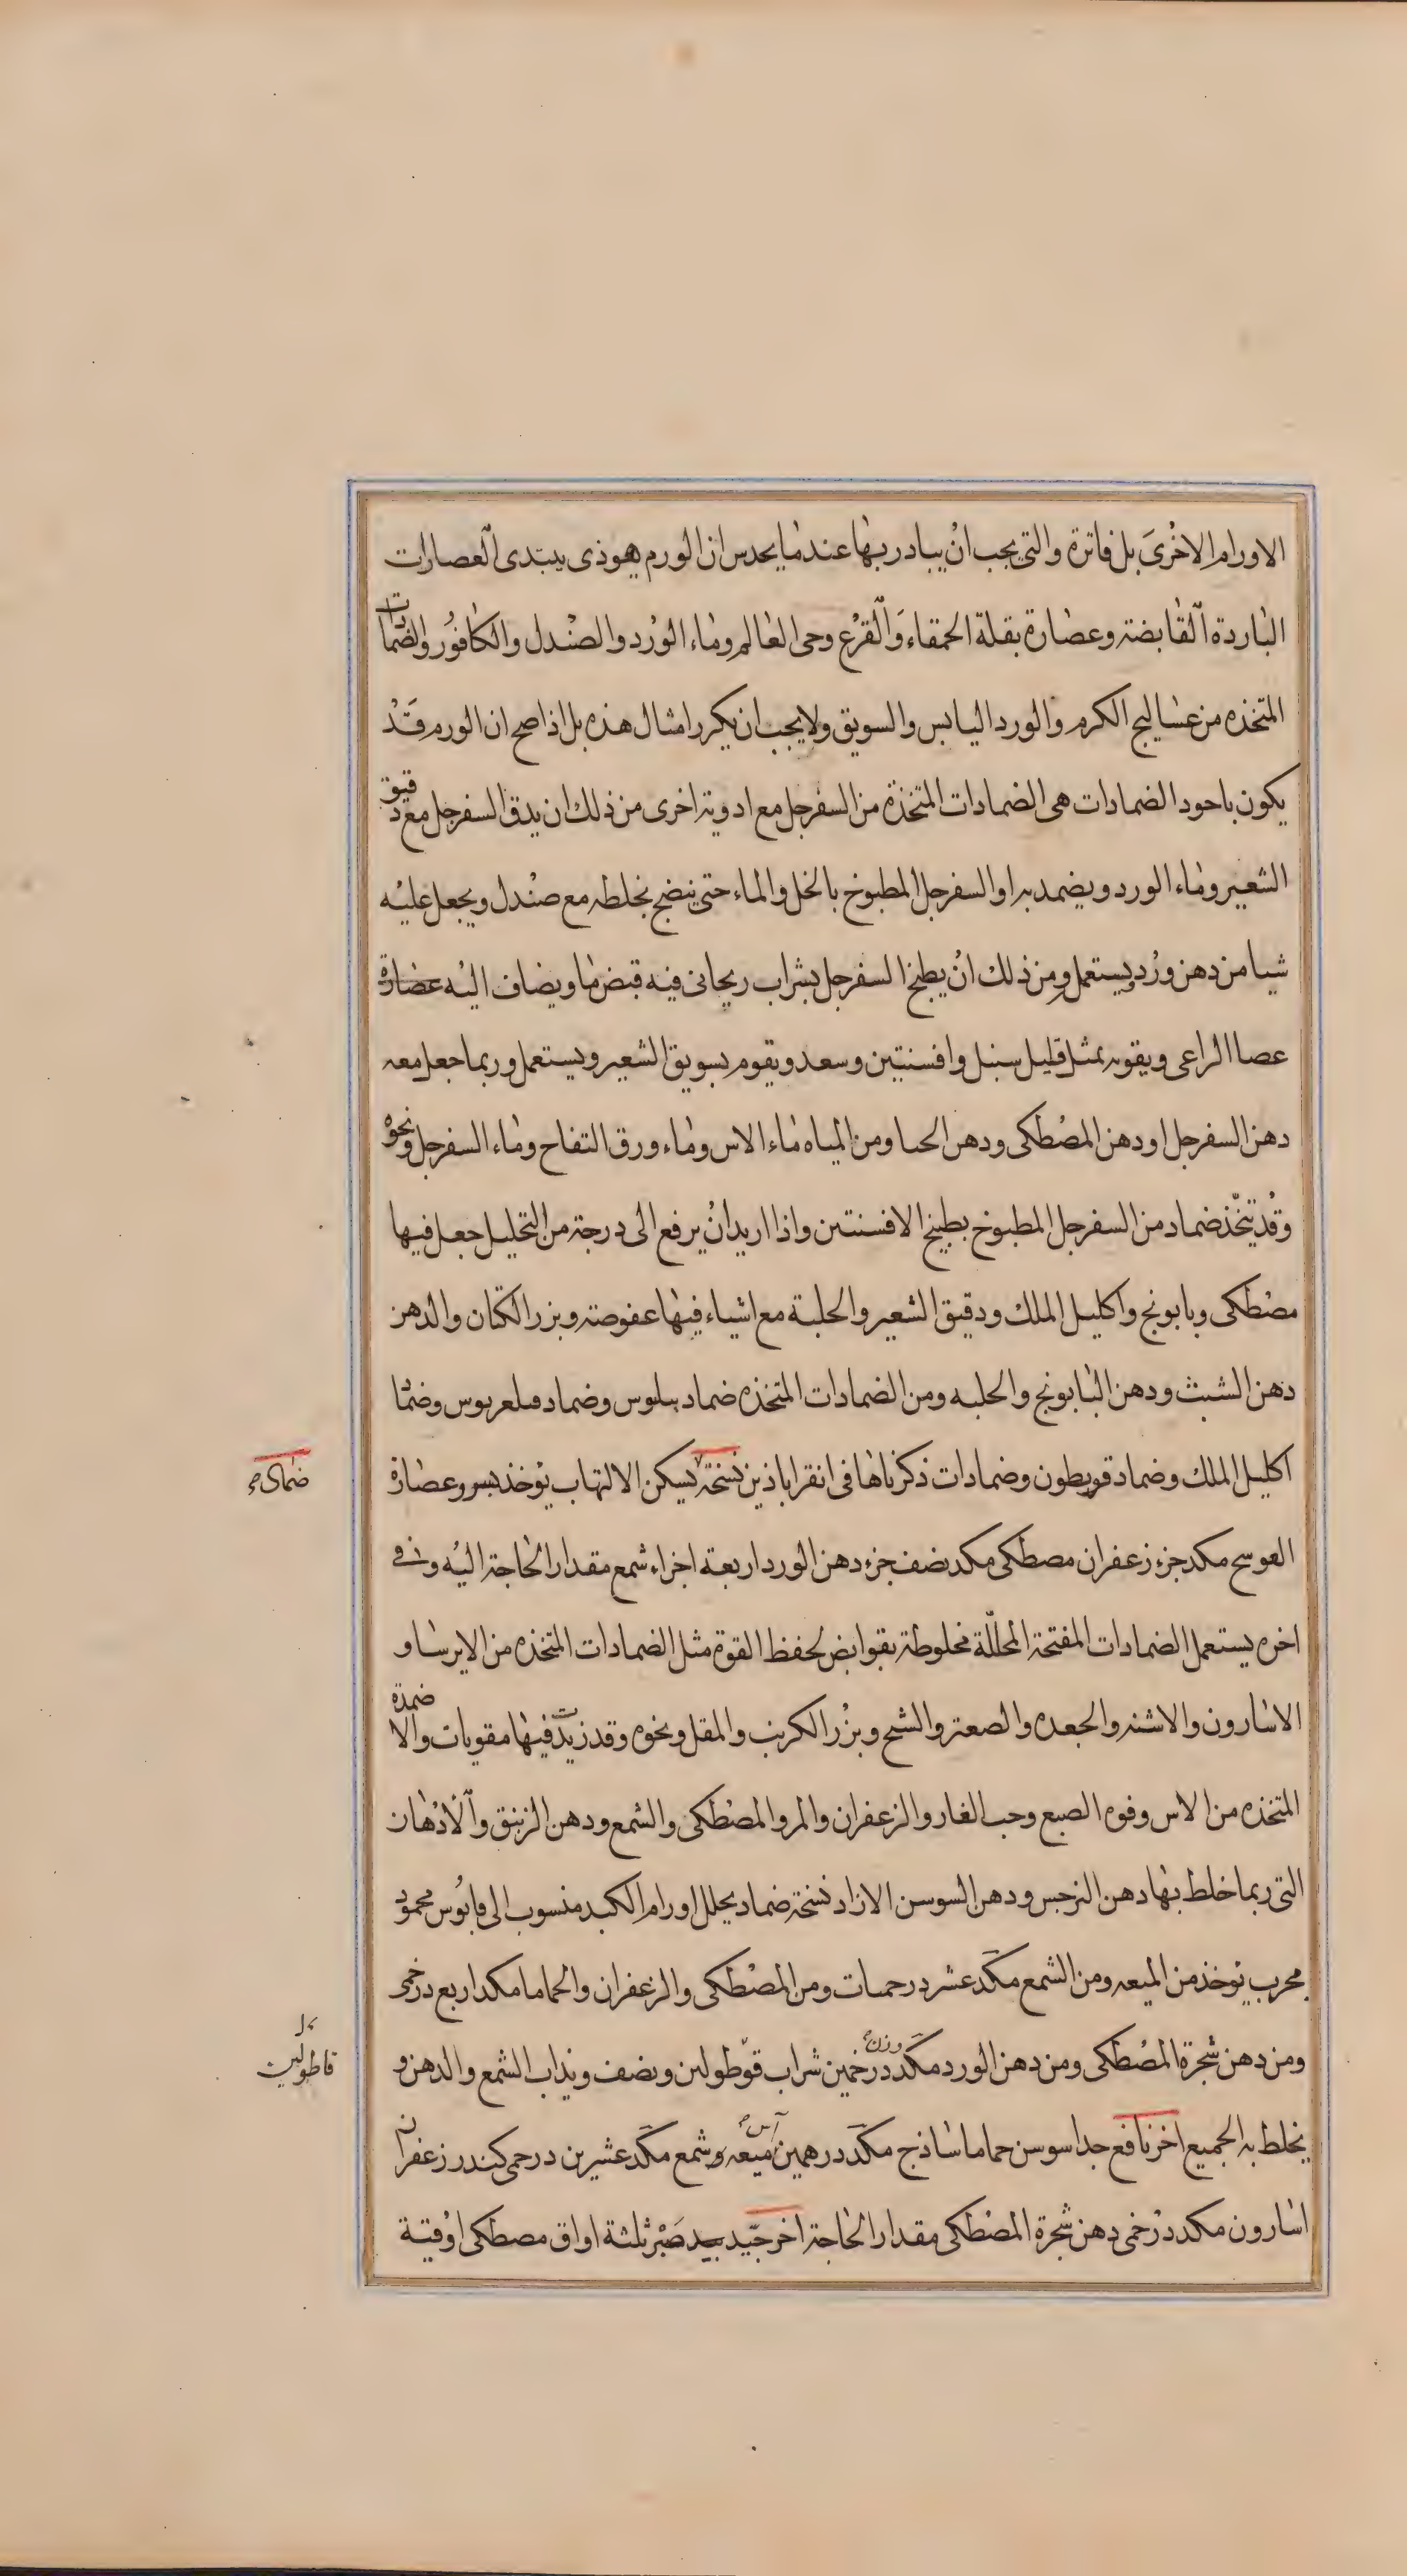 الاورام الاخرى بل فاترة والتى يجب ان يبادر بها عند ما يحدس ان الورم هو ذى يبتدى العصارات
الباردة القابضة وعصارة بقلة الحمقاء والقرع وحى العالم وماء الورد والصندل والكافور والضمادات
المتخذه من عساليج الكرم والورد اليابس والسويق ولا يجب ان يكرر امثال هذه بل اذا صح ان الورم قد
يكون باحود الضمادات هى الضمادات المتخذة من السفرجل مع ادوية اخرى من ذلك ان يدق السفرجل مع دقيق
الشعير وماء الورد ويضمد به او السفرجل المطبوخ بالخل والماء حتى ينضج نخلطه مع صندل ويجعل عليه
شيا من دهن ورد ويستعمل ومن ذلك ان يطبخ السفرجل بشراب ريحانى فيه قبض ما ويضاف اليه عصارة
عصا الراعى ويقويه بمثل قليل سنبل وافسنتين وسعد ويقوم بسويق الشعير ويستعمل وربما جعل معه
دهن السفرجل او دهن المصطكى ودهن الحنا ومن المياه ماء الاس وماء ورق التفاح وماء السفرجل ونحوه
وقد يتخذ ضماد من السفرجل المطبوخ بطبيخ الافسنتين واذا اريد ان يرفع الى درجة من التحليل جعل فيها
مصطكى وبابونج واكليل الملك ودقيق الشعير والحلبة مع اشياء فيها عفوصة وبزر الكتان والدهن
دهن الشبث ودهن البابونج والحلبه ومن الضمادات المتخذه ضماد وضماد وضماد
اكليل الملك وضماد قويطون وضمادات ذكرناها فى انقراباذين نسخة يسكن الالتهاب يوخذ بسر وعصارة
العوسج مكد جزء زعفران مصطكى مكد نصف جزء دهن الورد اربعة اجزاء شمع مقدار الحاجة اليه وفى
اخره يستعمل الضمادات المفتحة المحللة مخلوطة بقوابض لحفظ القوة مثل الضمادات المتخذه من الايرسا و
الاسارون والاشنه والجعده والصعتر والشيح وبزر الكرنب والمقل ونحوه وقد زيدت فيها مقويات والاضمدة
المتخذه من الاس وفوه الصبع وحب الغار والزعفران والمر والمصطكى والشمع ودهن الزنبق والادهان
التى ربما خلط بها دهن النرجس ودهن السوسن الازاد نسخة ضماد يحلل اورام الكبد منسوب الى فابوس محمود
مجرب يوخذ من الميعه ومن الشمع مكد عشر درحميات ومن المصطكى والزعفران والحماما مكد اربع درخمى
ومن دهن شجرة المصطكى ومن دهن الورد مكد وزن درخمين شراب قوطولين ونصف ويذاب الشمع والدهن و
يخلط به الجميع اخر نافع جدا سوسن حماما ساذج مكد درهمين آس ميعه وشمع مكد عشرين درحمى كندر زعفران
اسارون مكد درخمى دهن شجرة المصطكى مقدار الحاجة اخر جيد صبر ثلثة اواق مصطكى اوقية
ضماد
قاطولين